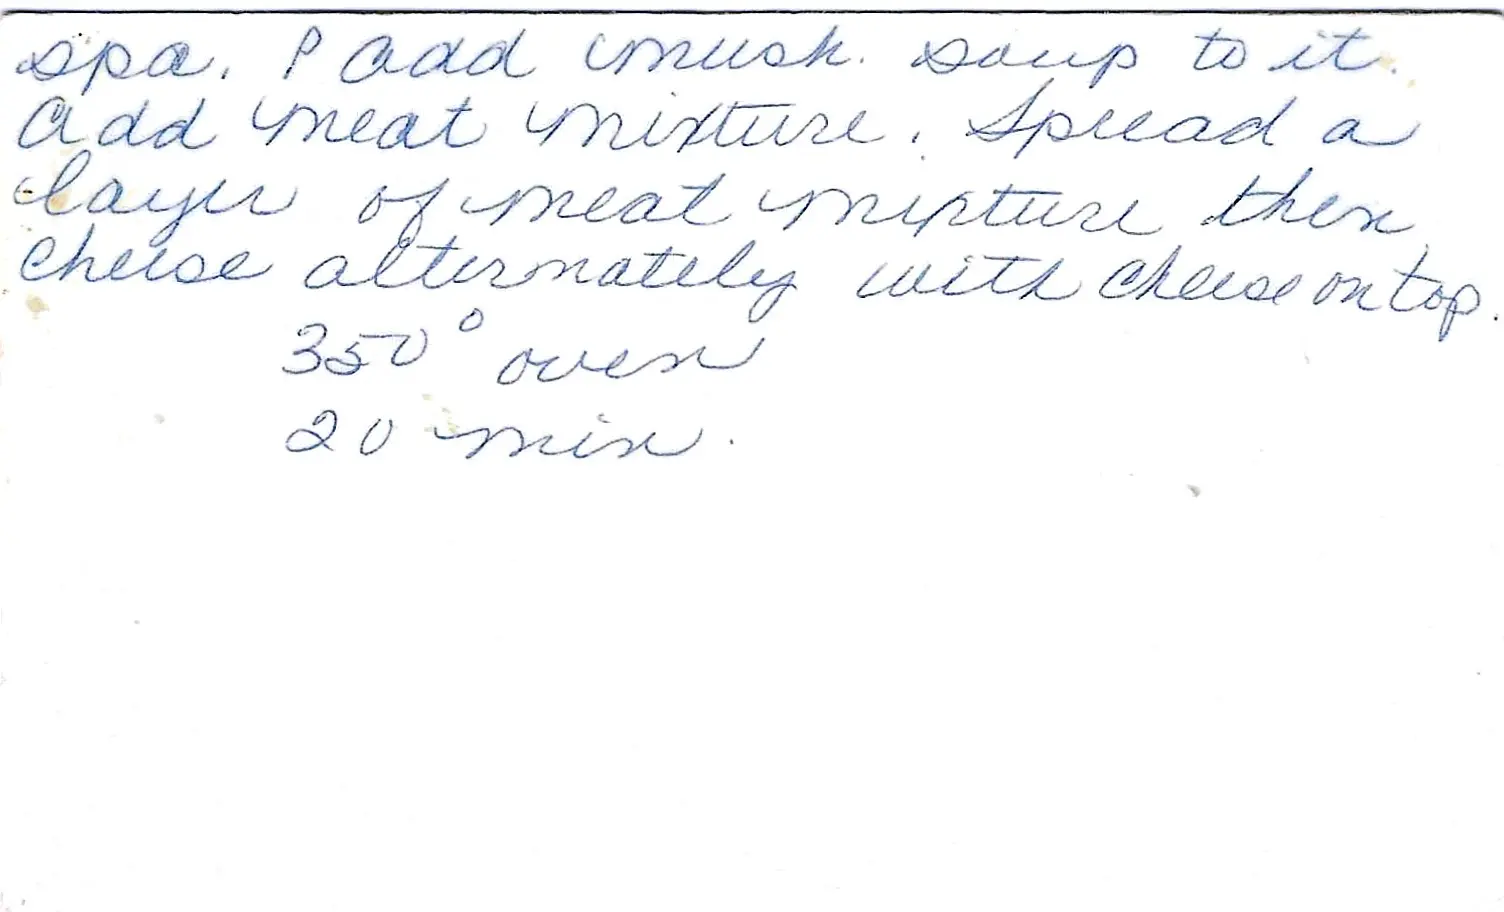 spa. P add mush. soup to it.
add meat mixture. Spread a
layer of meat mixture then
cheese alternately with cheese on top.
350° oven
20 min.